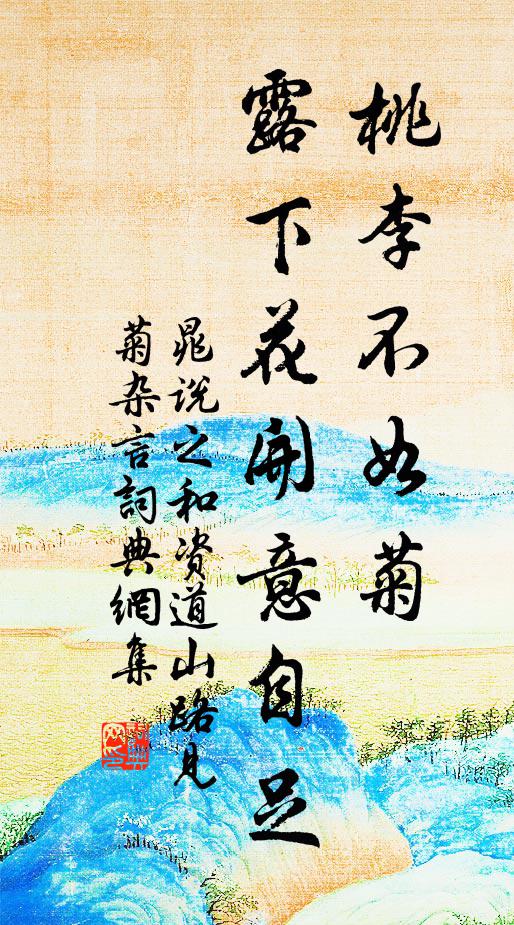 桃李不如菊
露下花開意自足
晁說之和资道山路見
菊杂言詞典網集